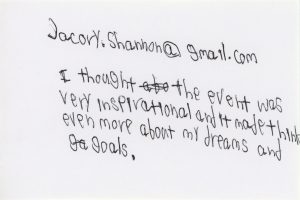 Jacory.Shannon@gmail.com
I thought the event was
very inspirational and it made think
even more about my dreams and
goals.